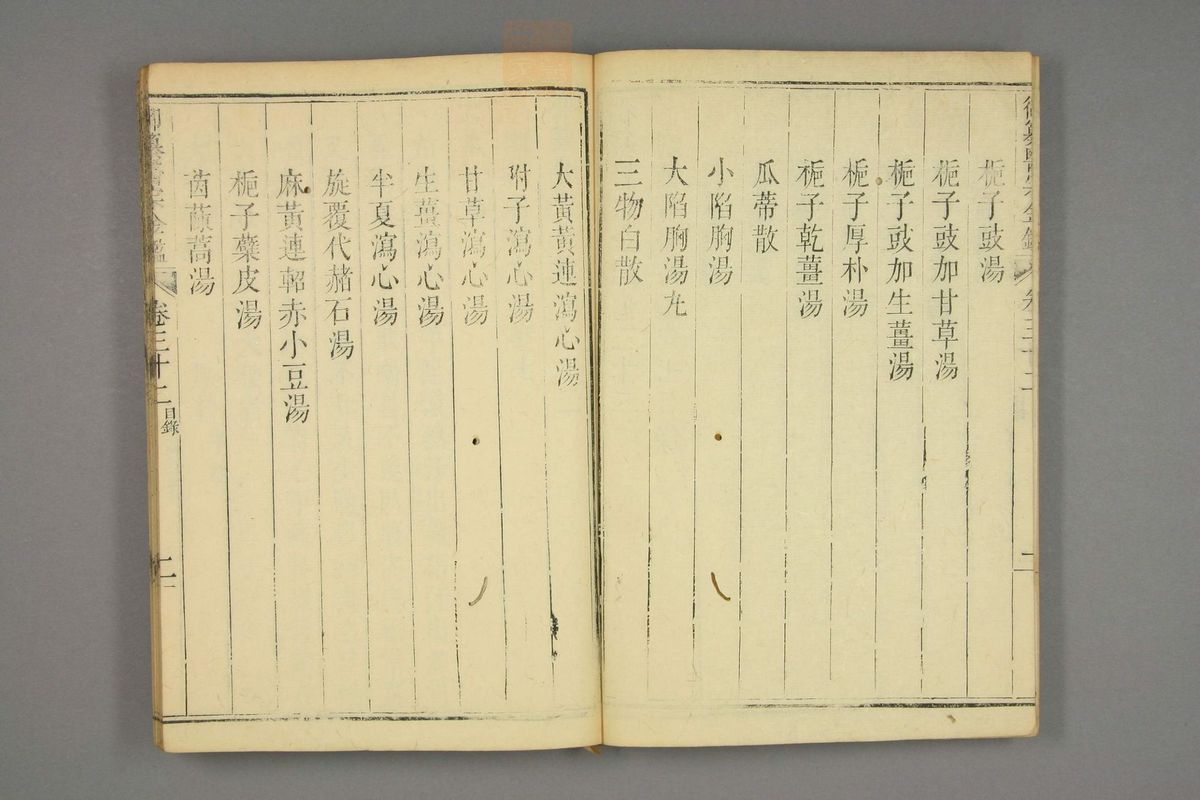 梔子豉湯
梔子豉加甘草湯
梔子豉加生薑湯
梔子厚朴湯
梔子乾薑湯
瓜蒂散
小陷胸湯
大陷胸湯丸
三物白散
大黃黃連瀉心湯
附子瀉心湯
甘草瀉心湯
生薑瀉心湯
半夏瀉心湯
旋覆代赭石湯
麻黃連軺赤小豆湯
梔子蘗皮湯
茵蔯蒿湯
卷三十二 目錄
二